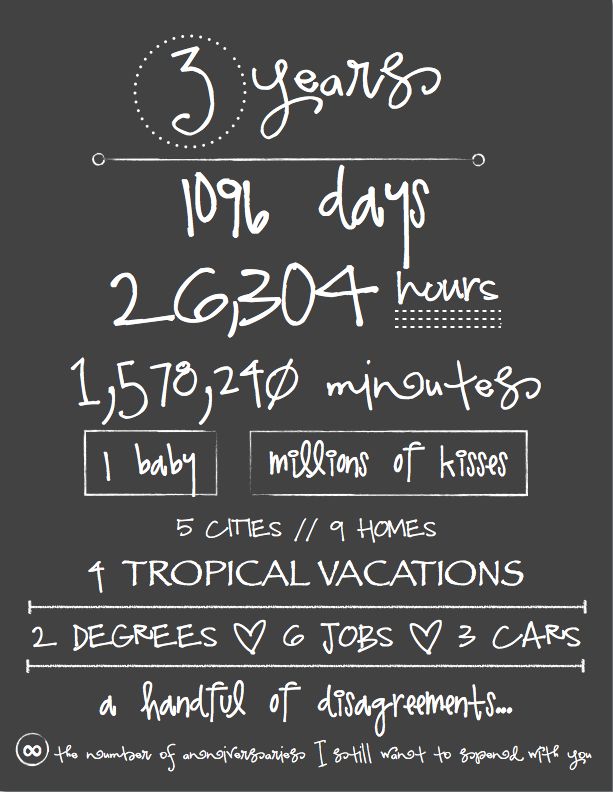 3 years
1096 days
26,304 hours
1,578,240 minutes
1 baby millions of kisses
5 CITIES // 9 HOMES
4 TROPICAL VACATIONS
2 DEGREES ♡ 6 JOBS ♡ 3 CARS
a handful of disagreements...
∞ the number of anniversaries I still want to spend with you